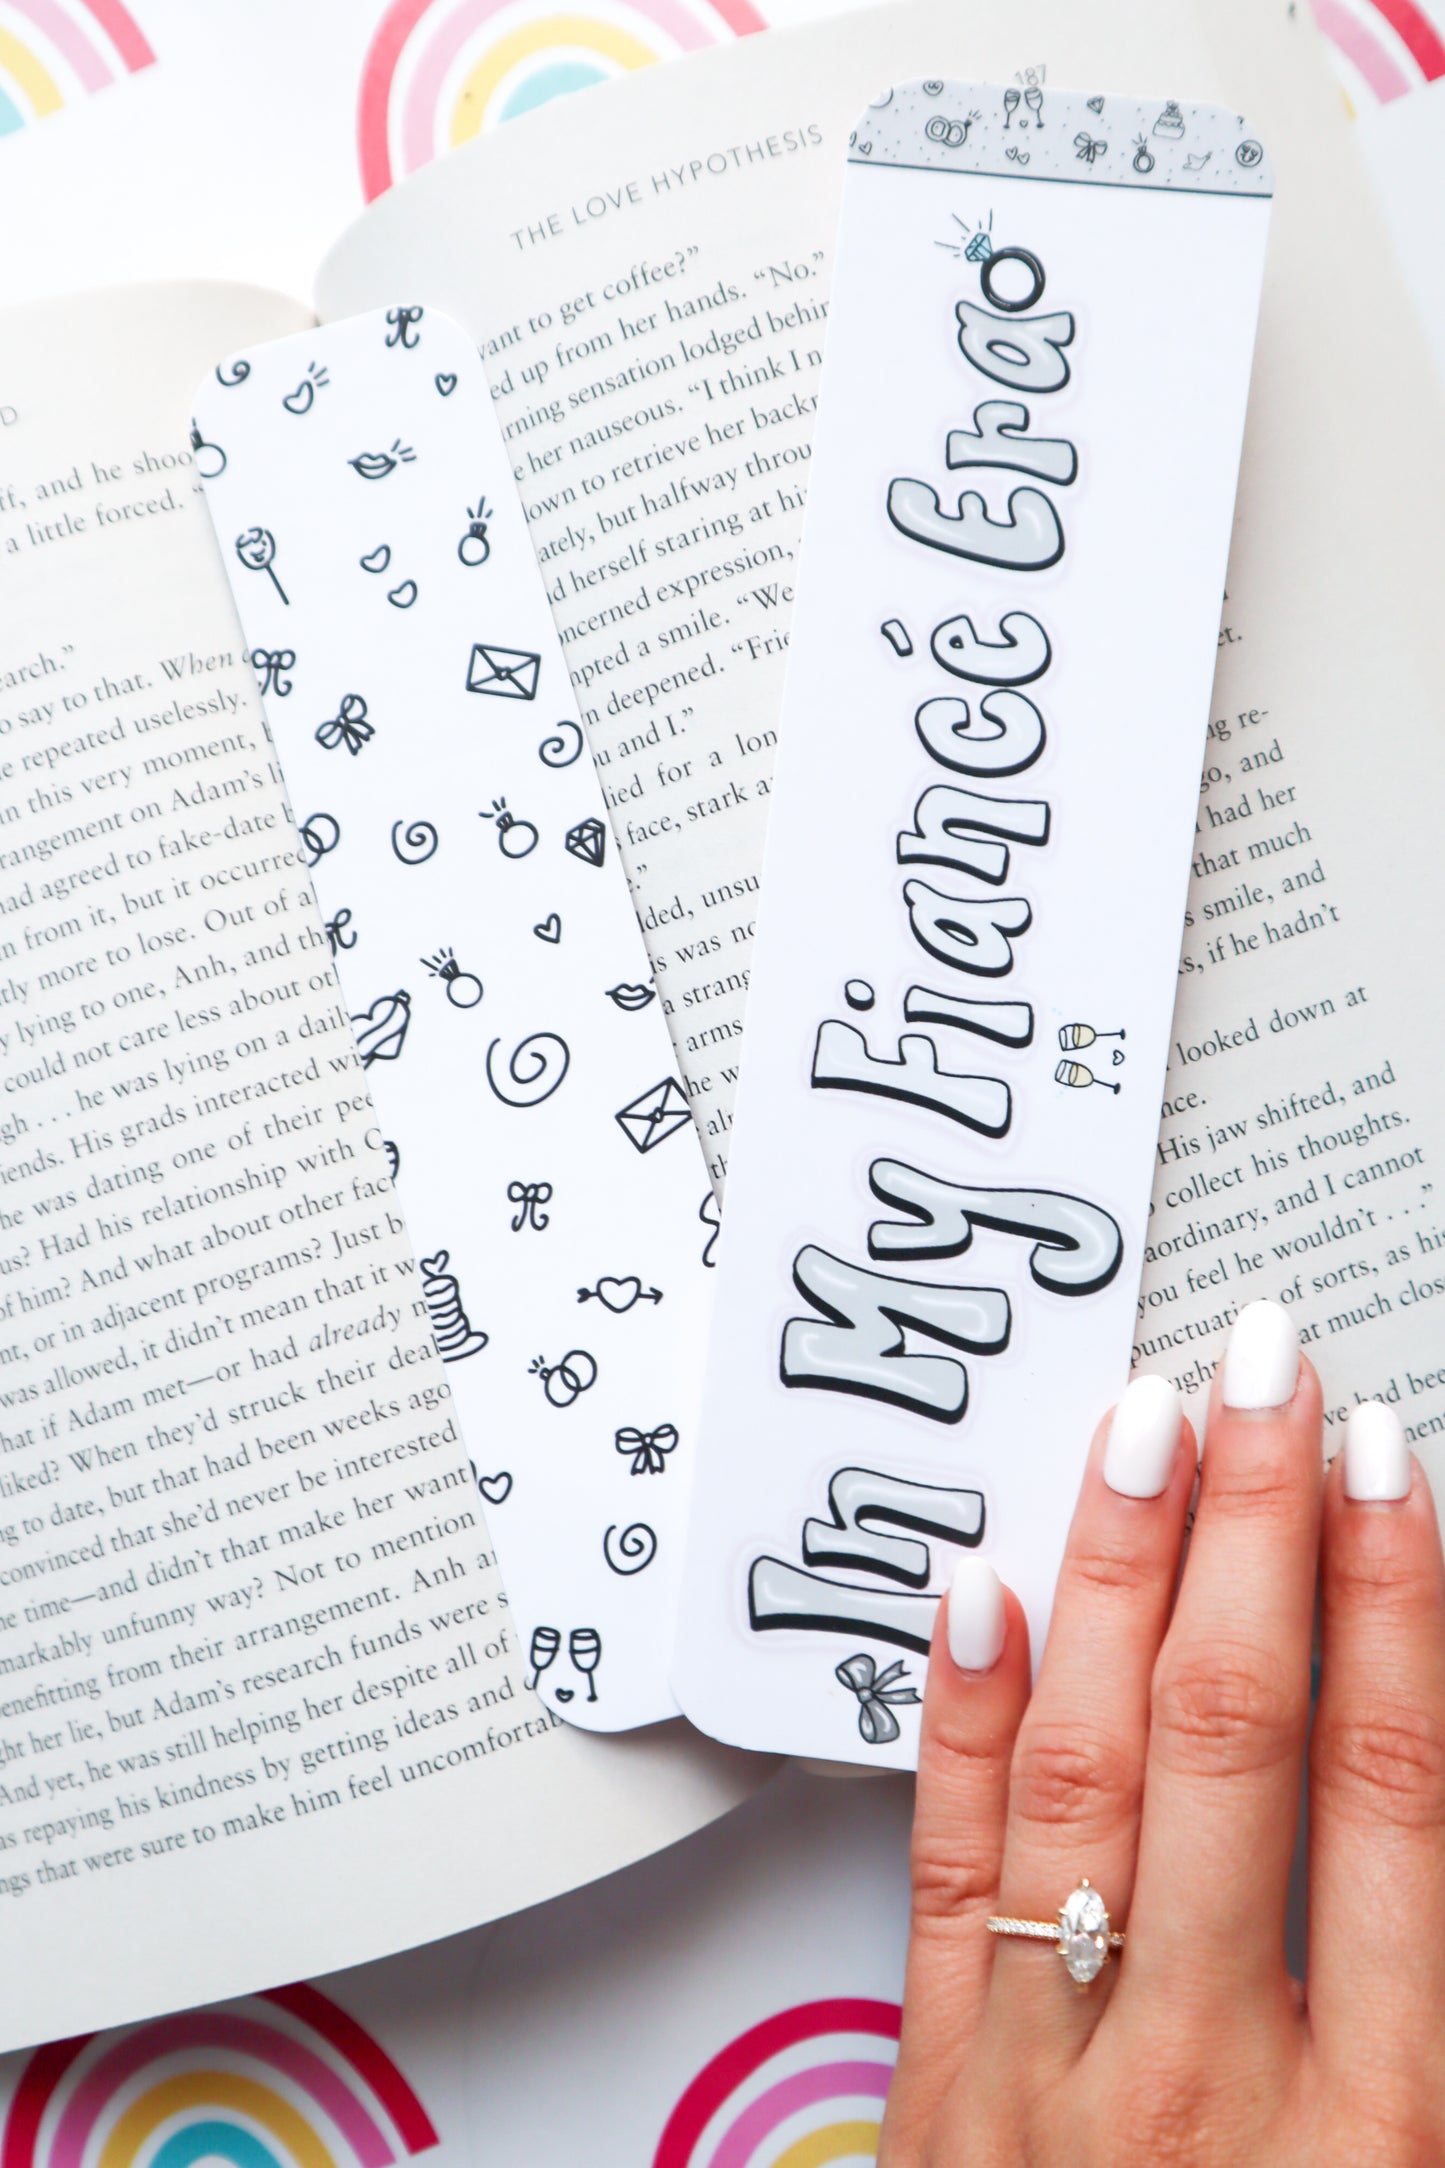 D
ff, and he shoo
a little forced. “
earch.”
o say to that. When
e repeated uselessly.
in this very moment,
rangement on Adam’s li
had agreed to fake-date b
n from it, but it occurred
tly more to lose. Out of a
y lying to one, Anh, and th
could not care less about ot
gh . . . he was lying on a daily
iends. His grads interacted wi
he was dating one of their pee
us? Had his relationship with O
of him? And what about other fac
nt, or in adjacent programs? Just b
was allowed, it didn’t mean that it w
hat if Adam met—or had already m
liked? When they’d struck their deal
ng to date, but that had been weeks ago
convinced that she’d never be interested
e time—and didn’t that make her want
markably unfunny way? Not to mention
enefitting from their arrangement. Anh a
ght her lie, but Adam’s research funds were s
And yet, he was still helping her despite all of
as repaying his kindness by getting ideas and
ngs that were sure to make him feel uncomfortab
THE LOVE HYPOTHESIS
187
want to get coffee?”
ed up from her hands. “No.”
rning sensation lodged behin
e her nauseous. “I think I n
down to retrieve her backp
ately, but halfway throu
d herself staring at hi
oncerned expression,
mpted a smile. “We
n deepened. “Frie
ou and I.”
lied for a lon
s face, stark a
lded, unsu
is was no
a strang
arms
he w
et.
ng re-
go, and
had her
that much
s smile, and
s, if he hadn’t
looked down at
nce.
His jaw shifted, and
collect his thoughts.
aordinary, and I cannot
you feel he wouldn’t . . .”
punctuati of sorts, as his
ught at much clos
ve had bee
In My Fiancé Era